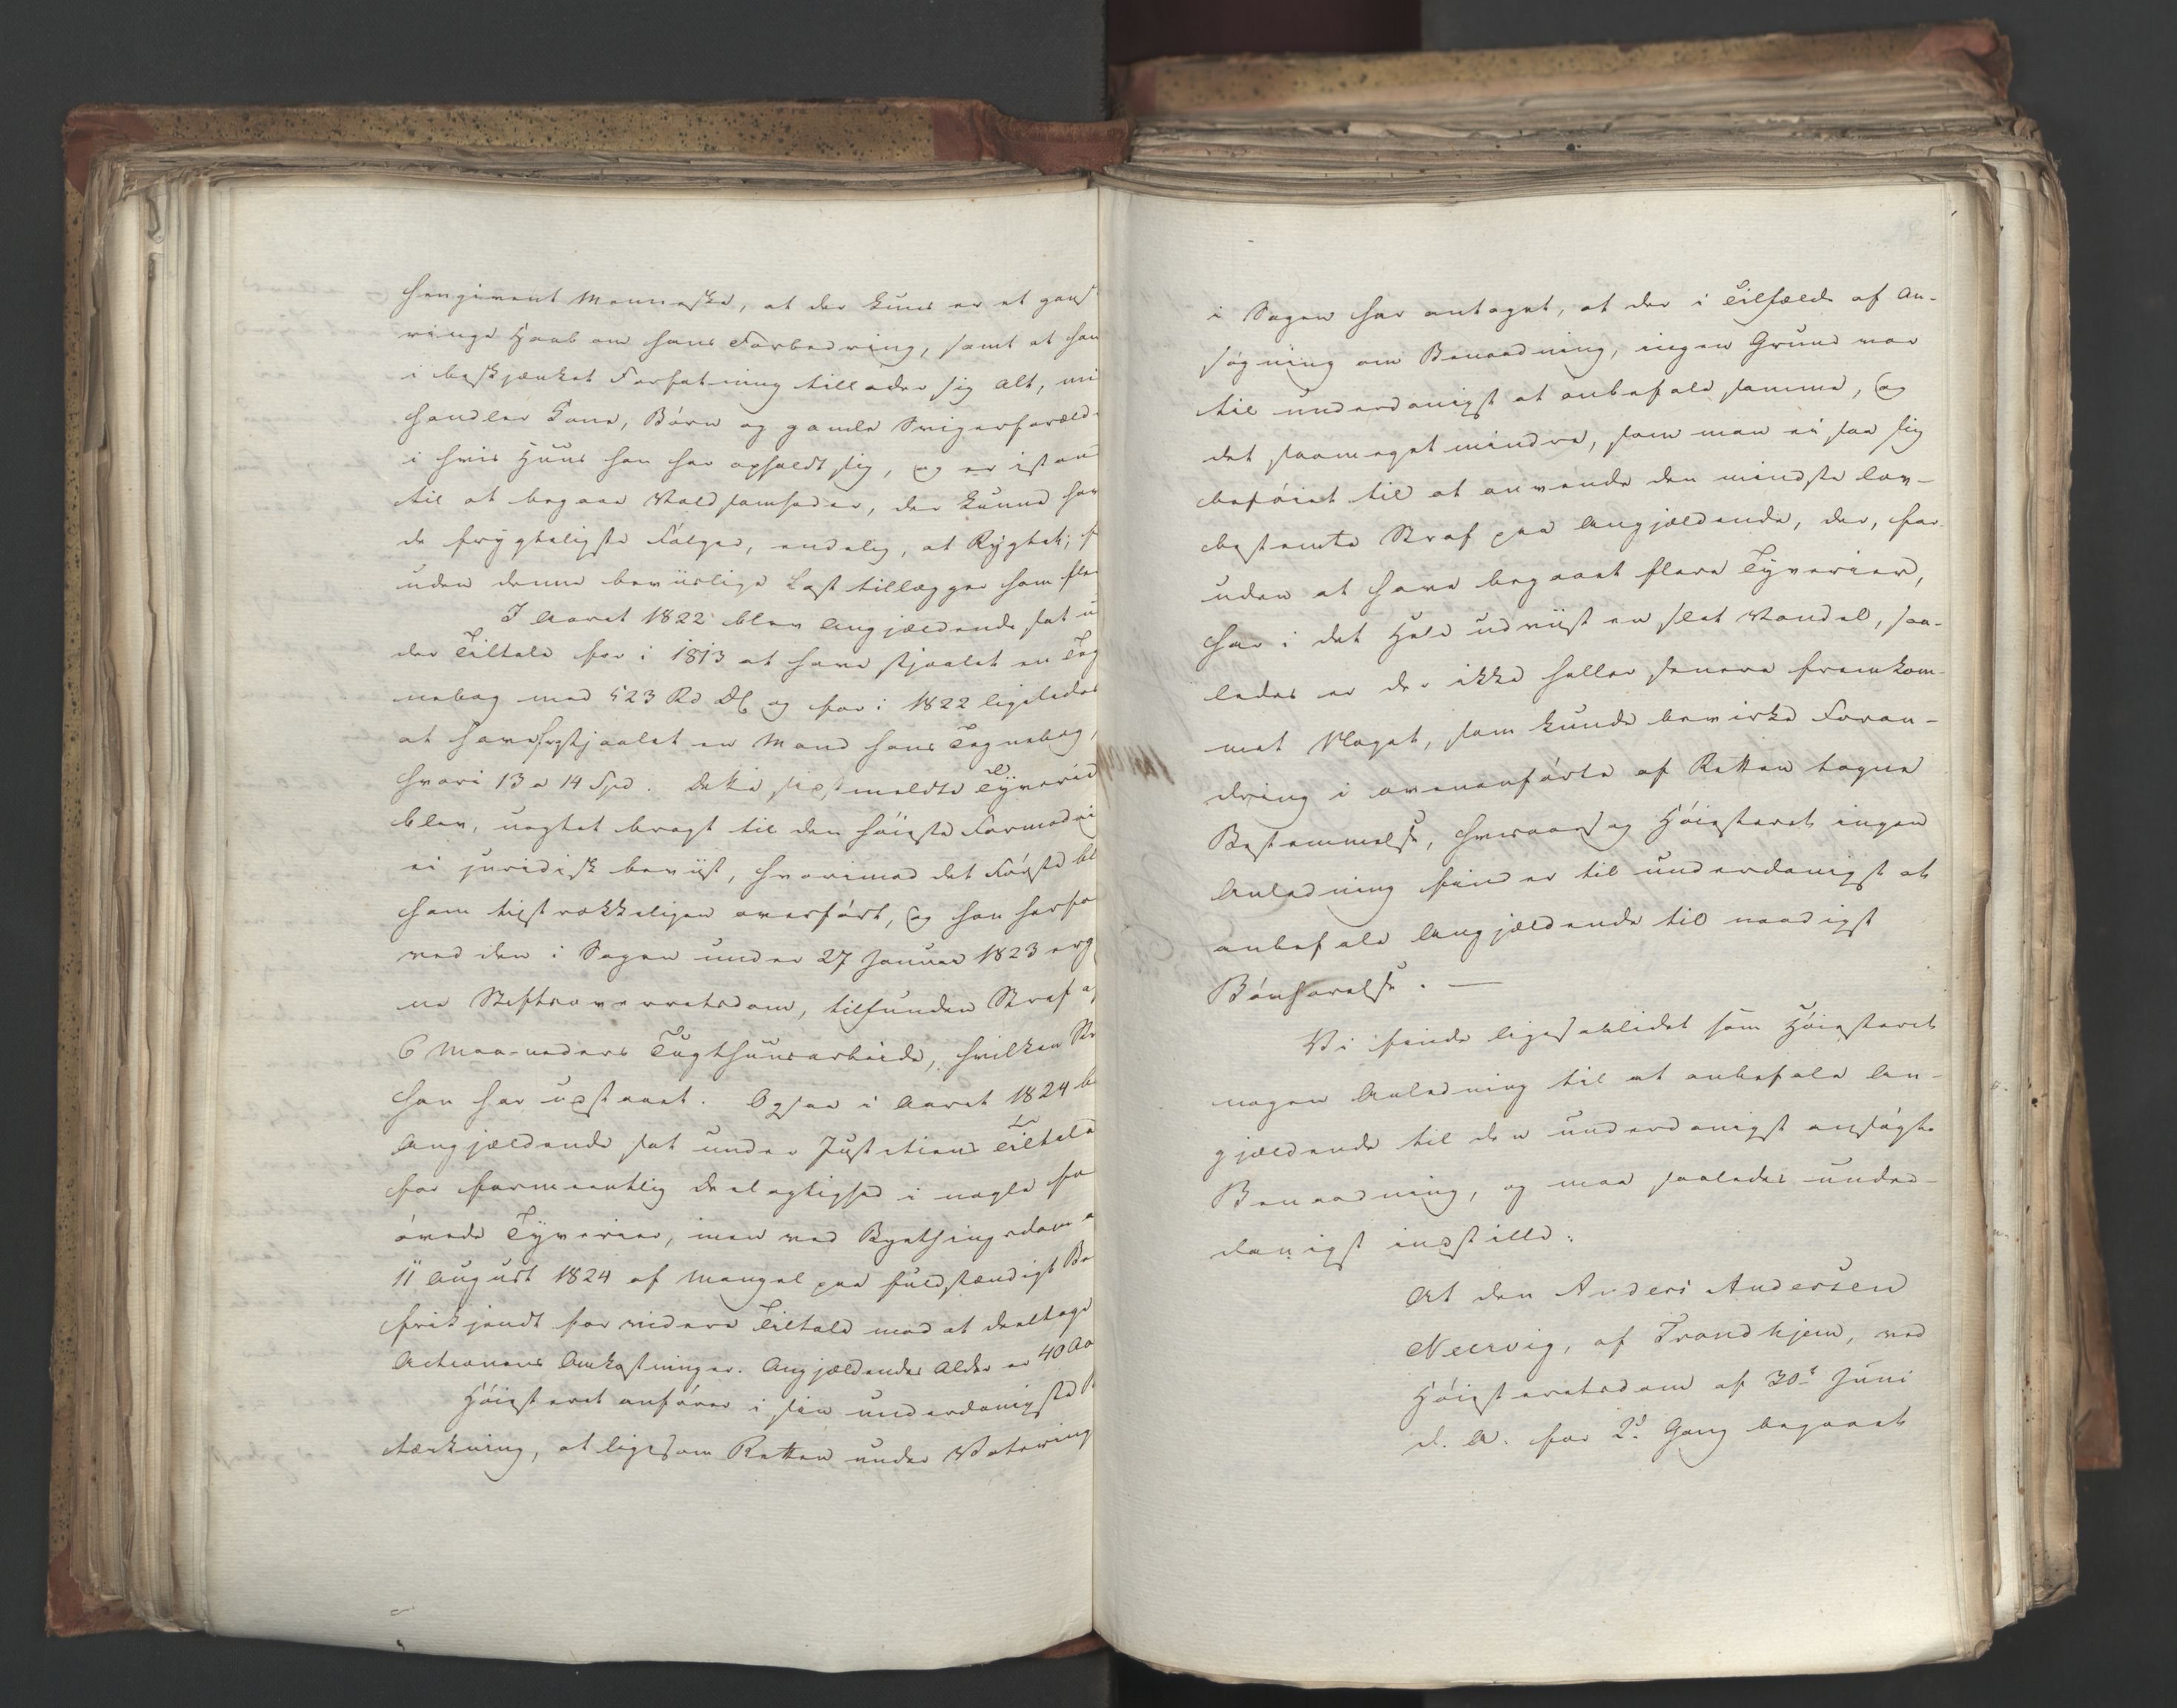 hengivent Menneske, at der kuns er et gans
ringe Haab om hans Forbedring, samt at han
i beskjænket Forfatning tillader sig Alt, mi
handler Kone, Børn og gamle Svigerforæld
i hvis Huus han har opholdt sig, og er istan
til at begaae Voldsomheder, der kunne hav
de frygteligste Følger, endelig, at Rygtet, f
uden denne beviislige Last tillægger ham fle
I Aaret 1822 blev Angjældende sat u
der Tiltale for i 1813 at have stjaalet en Teg
nebog med 523 Rd og for i 1822 ligeledes
at have frastjaalet en Mand hans Tegnebog,
hvori 13 a 14 Spd. Dette sidstmeldte Tyverie
blev, uagtet bragt til den høieste Formodni
ei juridisk beviist, hvorimod det Første bl
ham tilstrækkeligen overført, og han herfo
ved den i Sagen under 27 Januar 1823 erg
ne Stiftsoverretsdom, tilfunden Straf a
6 Maaneders Tugthuusarbeide, hvilken Str
han har udstaaet. Ogsaa i Aaret 1824 b
Angjældende sat under Justitiens Tiltale
for formeentlig Deelagtighed i nogle fo
øvede Tyverier, men ved Byethingsdom a
11 August 1824 af Mangel paa fuldstændigt Be
frikjendt for videre Tiltale mod at deeltage
Actionens Omkostninger. Angjældendes Alder er 40 Aa
Høiesteret anfører i sin underdanigste
tærkning, at ligesom Retten under Votering
i Sagen har antaget, at der i Tilfælde af An-
søgning om Benaadning, ingen Grund var
til underdanigst at anbefale samme, og
det saameget mindre, som man ei saa sig
beføiet til at anvende den mindste lov-
bestemte Straf paa Angjældende, der, for-
uden at have begaaet flere Tyverier,
har i det Hele udviist en slet Vandel, saa-
ledes er der ikke heller senere fremkom-
met Noget, som kunde bevirke Foran-
dring i ovenanførte af Retten tagne
Bestemmelse, hvoraarsag Høiesteret ingen
Anledning finder til underdanigst at
anbefale Angjældende til naadigst
Bønhørelse. —
Vi finde ligesaalidet som Høiesteret
nogen Anledning til at anbefale An-
gjældende til den underdanigst ansøgte
Benaadning, og maa saaledes under-
danigst indstille:
At den Anders Andersen
Neervig, af Trondhjem, ved
Høiesteretsdom af 30te Juni
d. A. for 2d Gang begaaet